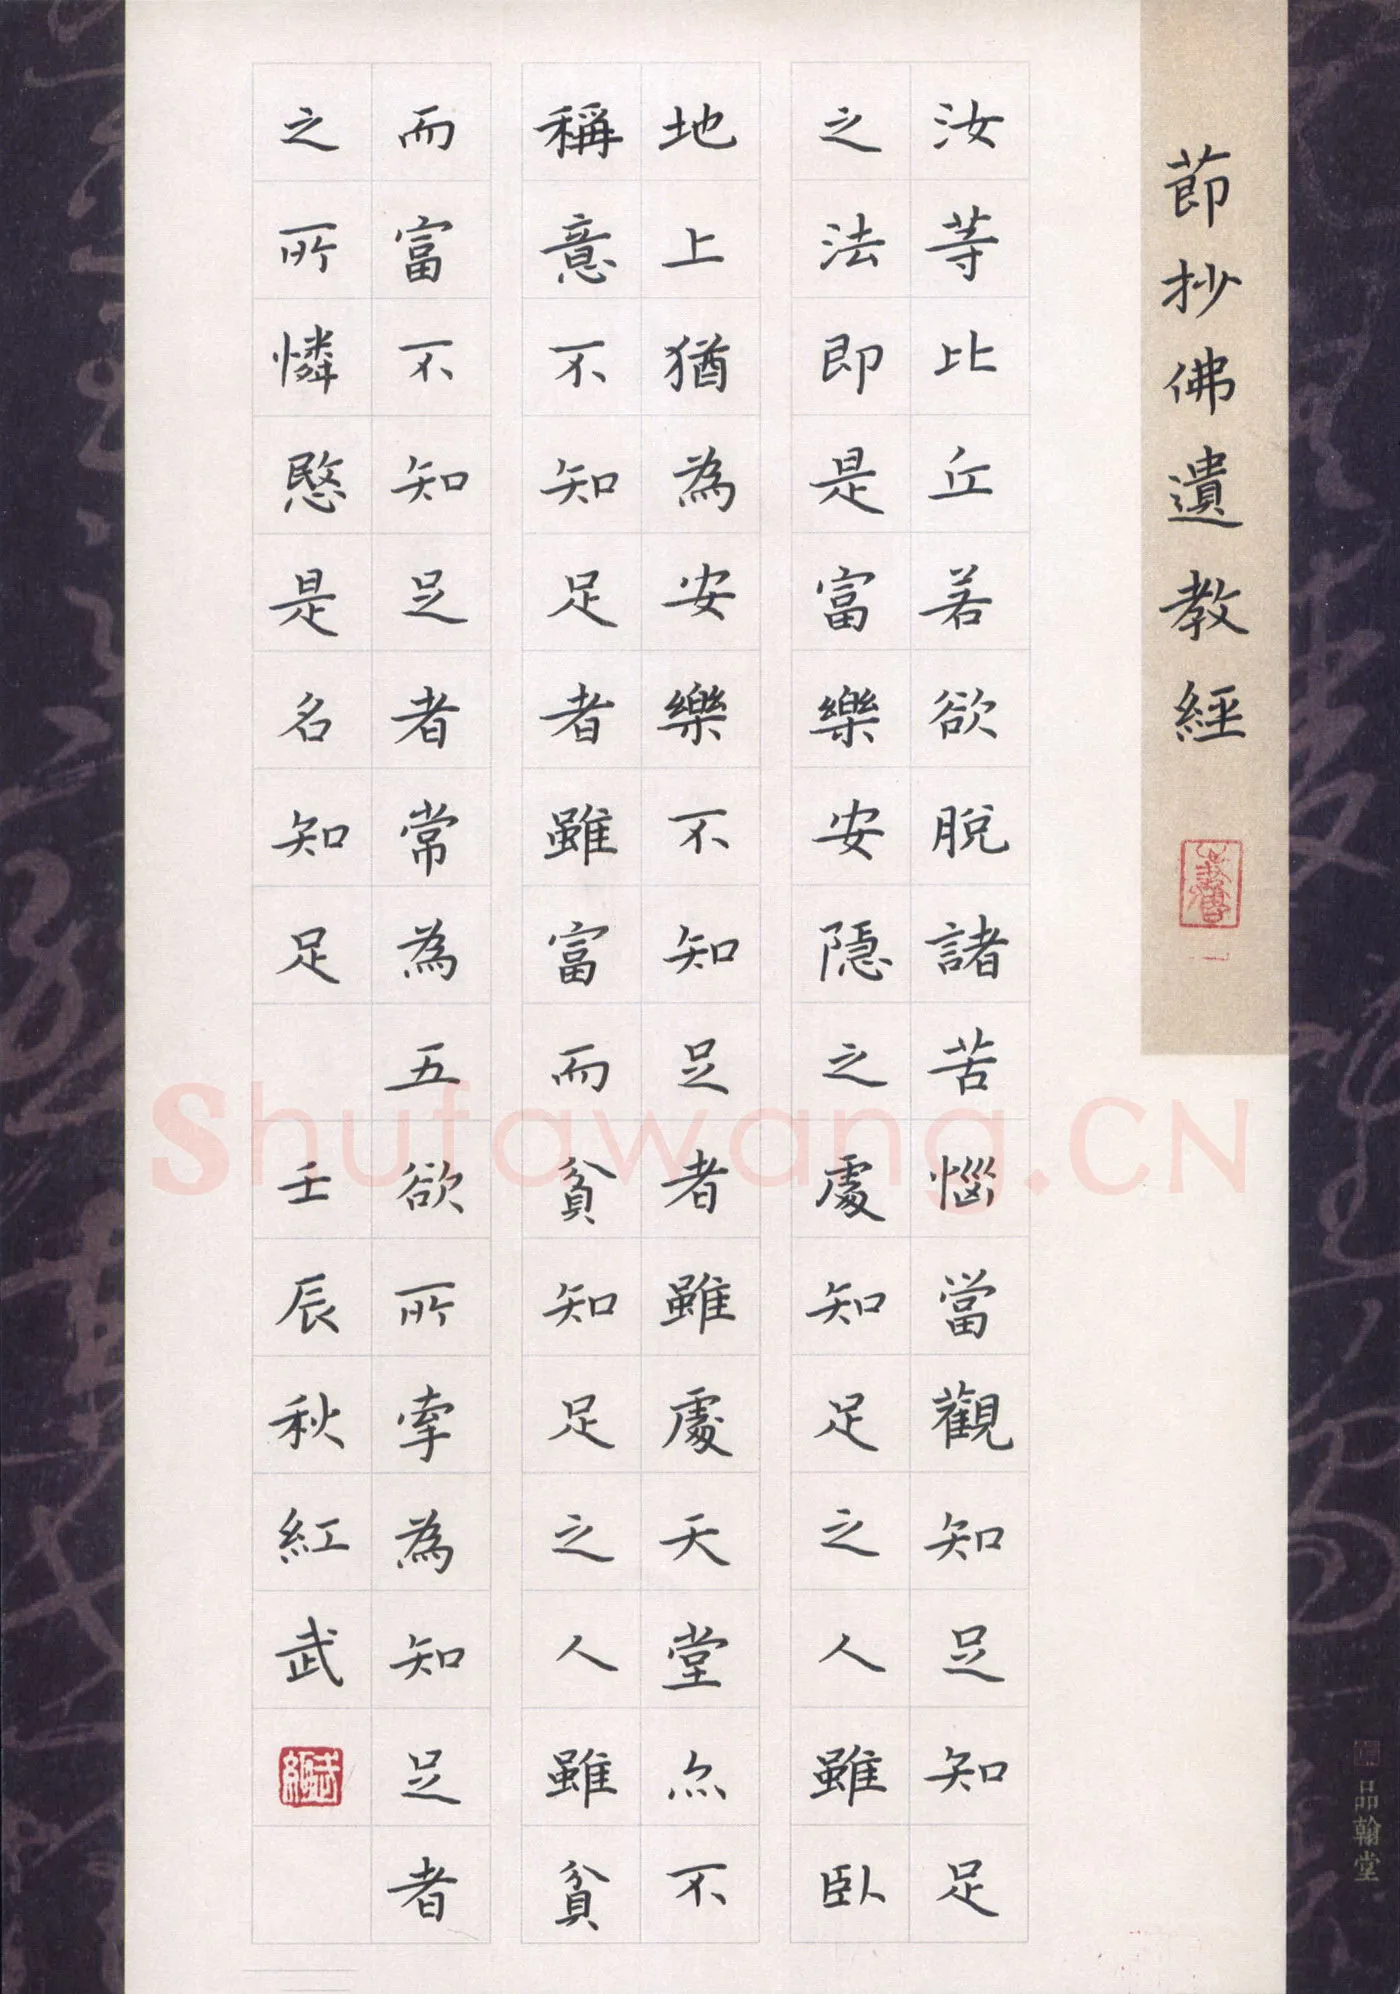 莭抄佛遺教經
汝等比丘若欲脫諸苦惱當觀知足知足
之法即是富樂安隱之處知足之人雖臥
地上猶為安樂不知足者雖處天堂亦不
稱意不知足者雖富而貧知足之人雖貧
而富不知足者常為五欲所牽為知足者
之所憐愍是名知足 壬辰秋紅武
品翰堂
Shufawang.CN